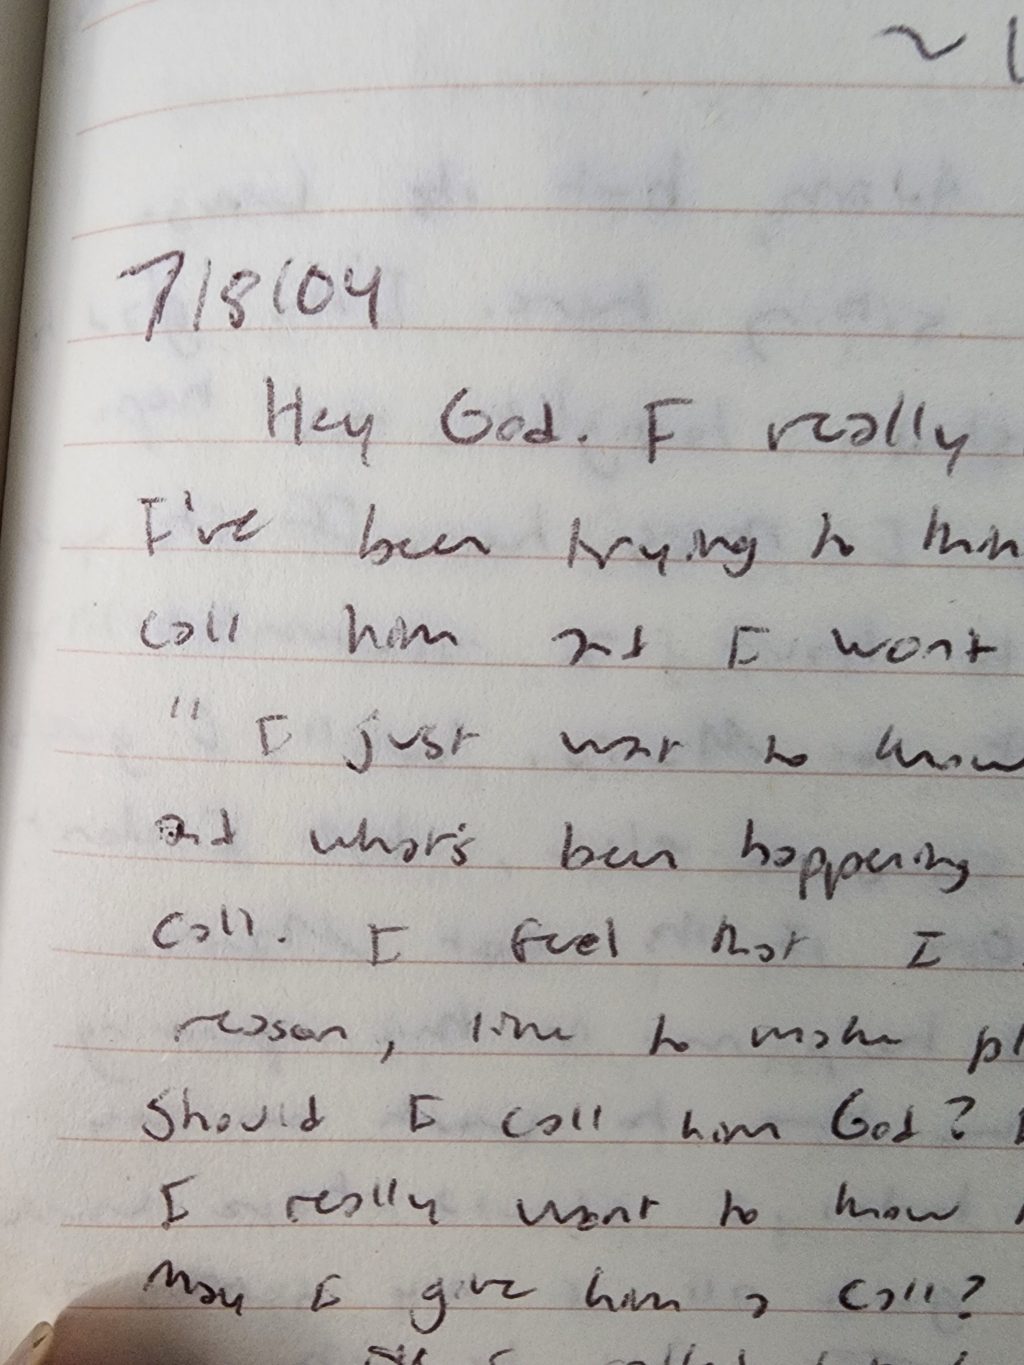 ~
7/8/04
Hey God. I really
I've been trying to thin
call him and I want
" I just want to know
and what's been happening
call. I feel that I
reason, like to make pl
Should I call him God?
I really want to know
May I give him a call?